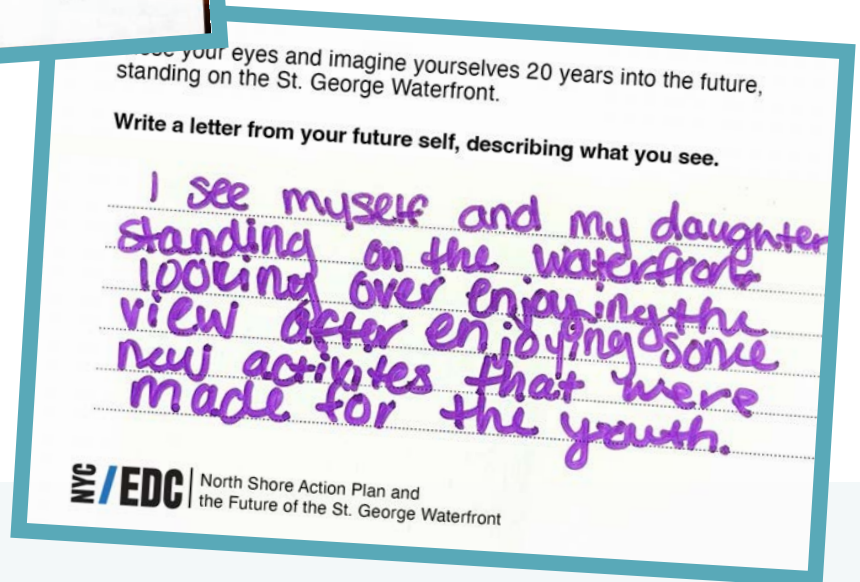 your eyes and imagine yourselves 20 years into the future,
standing on the St. George Waterfront.
Write a letter from your future self, describing what you see.
I see myself and my daughter
standing on the waterfront
looking over enjoying the
view after enjoying some
new activites that were
made for the youth.
NYC/EDC
North Shore Action Plan and
the Future of the St. George Waterfront